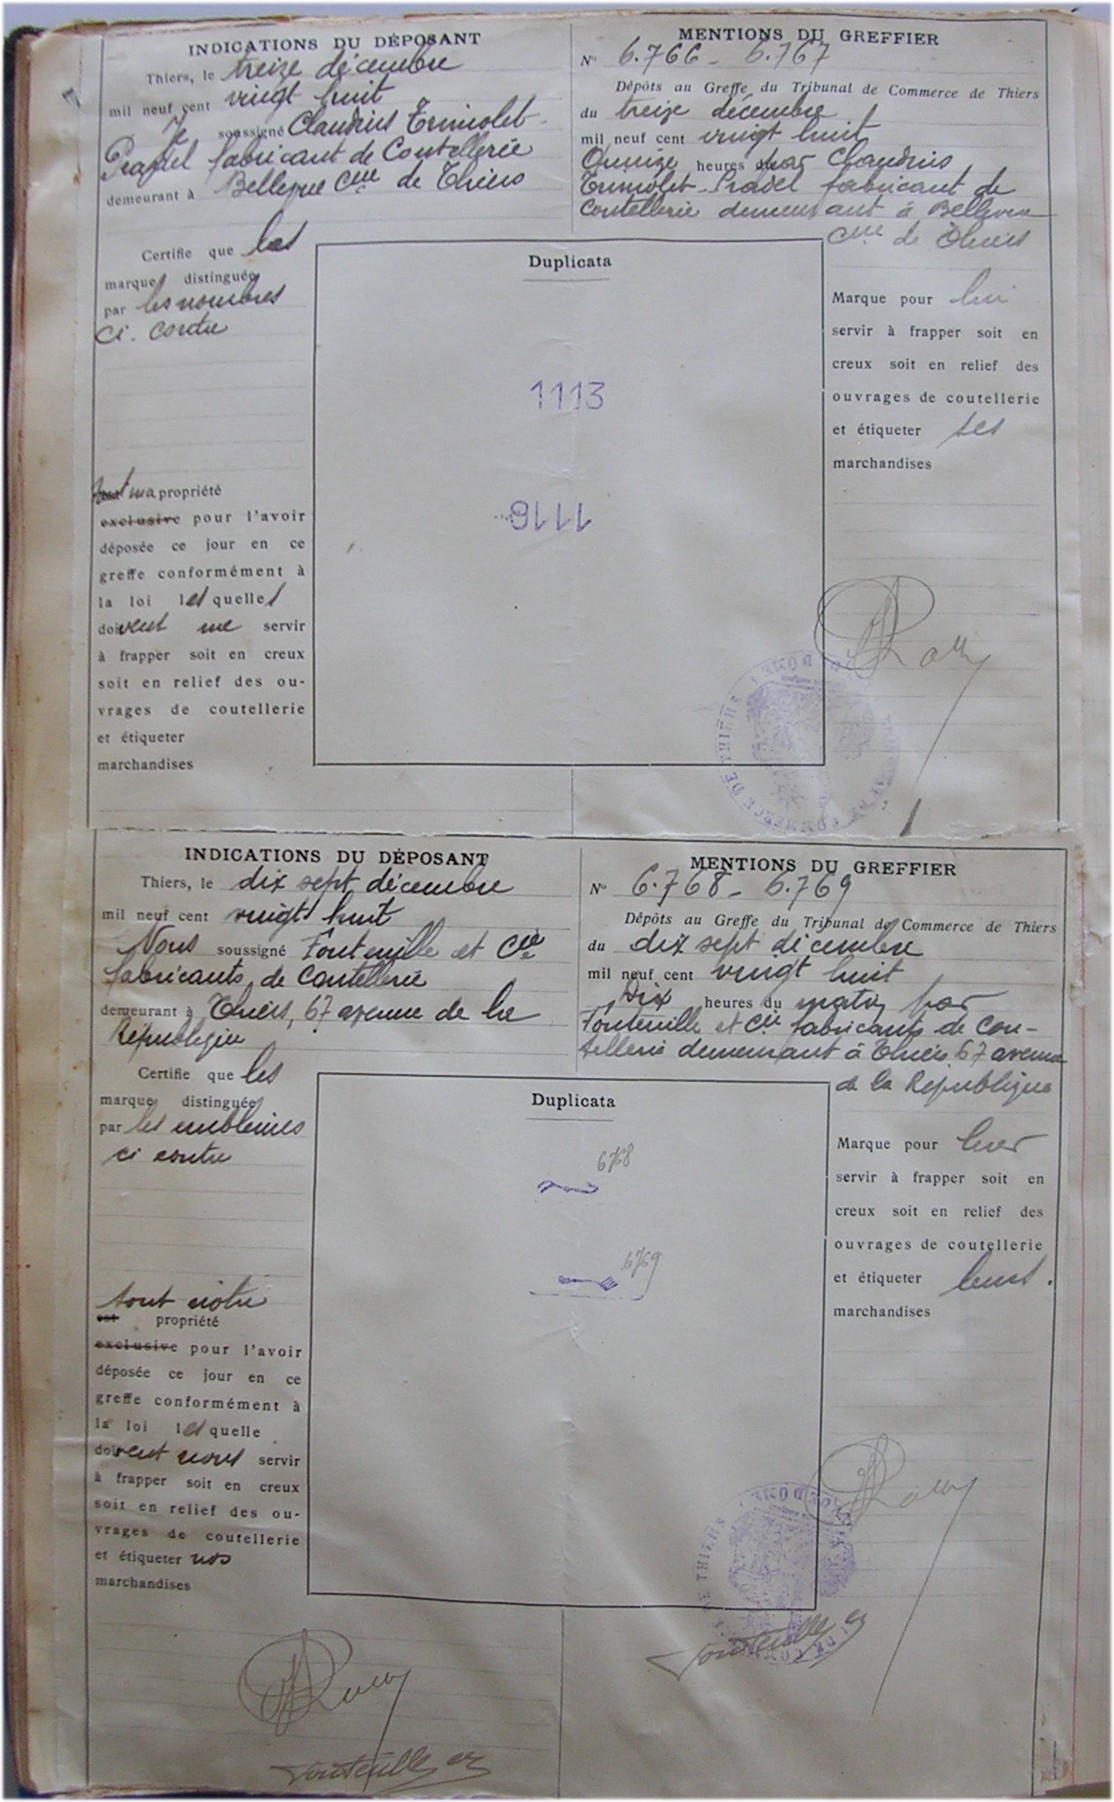 INDICATIONS DU DÉPOSANT
Thiers, le treize décembre
mil neuf cent vingt huit
Je soussigné Claudius Trimolet-
Pradel fabricant de Coutellerie
demeurant à Bellevue Cne de Thiers
Certifie que les
marques distinguées
par les nombres
ci. contre
sont ma propriété
exclusive pour l'avoir
déposée ce jour en ce
greffe conformément à
la loi lesquelles
doivent me servir
à frapper soit en creux
soit en relief des ou-
vrages de coutellerie
et étiqueter
marchandises
MENTIONS DU GREFFIER
N° 6.766 - 6.767
Dépôts au Greffe du Tribunal de Commerce de Thiers
du treize décembre
mil neuf cent vingt huit
Quinze heures par Claudius
Trimolet-Pradel fabricant de
Coutellerie demeurant à Bellevue
Cne de Thiers
Duplicata
1113
1116
Marque pour lui
servir à frapper soit en
creux soit en relief des
ouvrages de coutellerie
et étiqueter ses
marchandises
COMMERCE DE THIERS
INDICATIONS DU DÉPOSANT
Thiers, le dix sept décembre
mil neuf cent vingt huit
Nous soussigné Fontenille et Cie
fabricants de Coutellerie
demeurant à Thiers, 67 avenue de la
République
Certifie que les
marques distinguées
par les emblèmes
ci contre
sont notre
est propriété
exclusive pour l'avoir
déposée ce jour en ce
greffe conformément à
la loi lesquelle
doivent nous servir
à frapper soit en creux
soit en relief des ou-
vrages de coutellerie
et étiqueter nos
marchandises
MENTIONS DU GREFFIER
N° 6.768 - 6.769
Dépôts au Greffe du Tribunal de Commerce de Thiers
du dix sept décembre
mil neuf cent vingt huit
Dix heures du matin par
Fontenille et Cie fabricants de Cou-
tellerie demeurant à Thiers 67 avenue
de la République
Duplicata
6768
6769
Marque pour leur
servir à frapper soit en
creux soit en relief des
ouvrages de coutellerie
et étiqueter leurs.
marchandises
DE THIERS
Fontenille et
Fontenille et